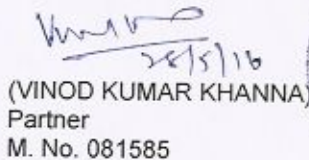 28/5/16
(VINOD KUMAR KHANNA)
Partner
M. No. 081585